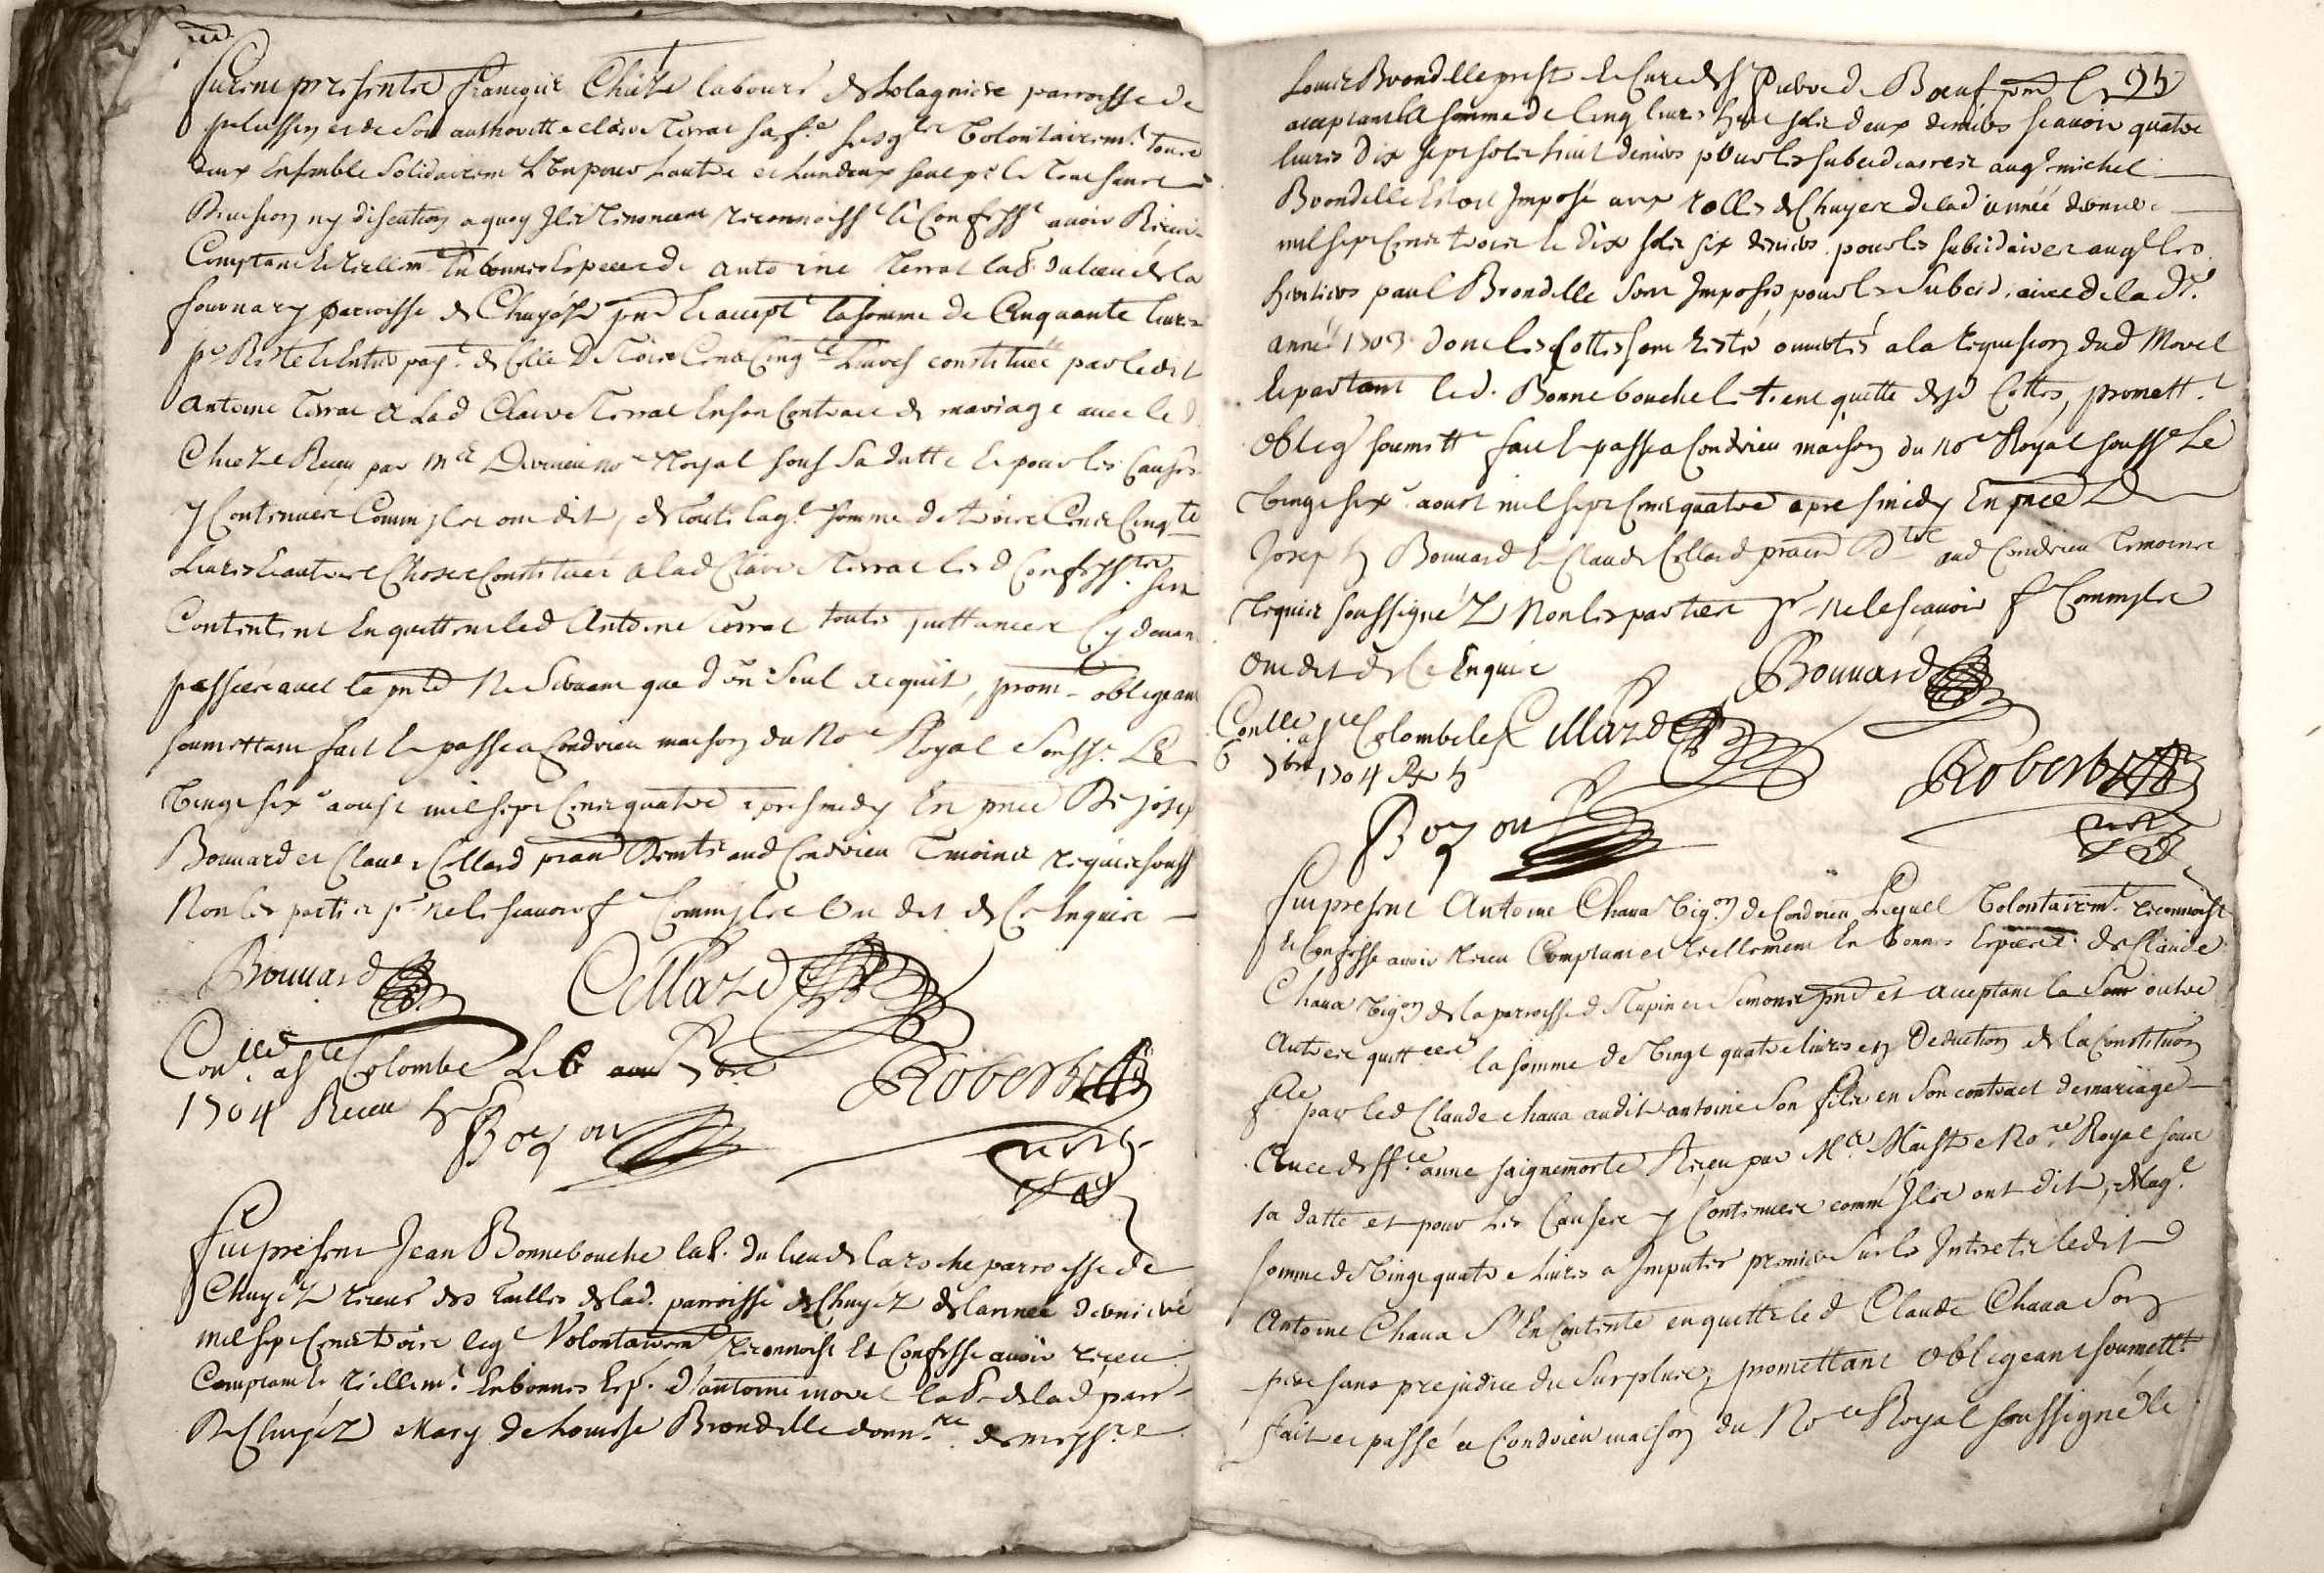 furent presents françois Chieze labour. de Solagniere parroisse de
pelussin et de son authoritte claire Terrat sa fe. lesqls volontairemt. tous
deux Ensemble Solidairem. L'un pour L'autre et L'un deux seul pr. le Tout sans
Division ny discution a quoy Ils Renoncent reconnoisst. et Confesst avoir Receu
Comptant et reellemt. En bonnes Espece de antoine terrat lab. du lieu de la
fournary parroisse de Chuyéz pnt Et acept. la somme de Cinquante livres
pr. Reste et Entier payt. de Celle De Trois Cens Cinqte Livres constituée par ledit
antoine Terrat a Lad Claire Terrat En son Contract de mariage avec led
Chieze Receu par Me nore Royal sous Sa datte Et pour les Causes
y Contenues Comm ils ont dit, de toute laql somme de trois Cens Cinqte
Livres Et autres Choses Constituées a lad Claire Terrat lesd Confesst. sen
Contentent En quittent led Antoine Terrat toutes quittances Cy devant
passées avec la pnte Ne Servant que d'un Seul acquit, prom. obligeant
soumettant fait Et passe a Condrieu maison du Nore Royal Soussé. Le
Vingt sixe aoust mil sept Cens quatre apres midy En pnce De josep
Bouuard et Claude Cellard prat Demts aud Condrieu Tmoins requis souss
Non les parties pr. ne le scavoir fe Comm ils ont dit de Ce Enquis
Bouuard Cellard
Conlle. a ste Colombe Le 6 7bre
1704 Receu 5s Robert
Boyou nore
Rl
fut present Jean Bonnebouche lab. du lieu de la roche parroisse de
Chuyéz receur des tailles de lad. parroisse de Chuyéz de lannée derniere
mil sept Cens trois leql Volontairemt reconnoist Et Confesse avoir receu
Comptant Et réellemt. En bonnes Esp. d'antoine morel lab de lad parr
De Chuyéz Mary de Louise Brondelle donnre. de messre
Louis Brondelle prest. et Cure de St Pierre de Bœuf pnt Et 95
acceptant la somme de Cinq livres huit sols deux deniers scavoir quatre
livres Dix sept sols huit deniers pour les subcidiaires auql michel
Brondelle Estoit Imposé aux rolles de Chuyes de lad année derniere
mil sept Cens trois Et Dix sols six deniers pour les subcidiaires auql les
heritiers paul Brondelle sont Imposés pour les Subcidiaires de la de.
année 1703 dont les Cottes sont restés ommetés a la requision dud Morel
Et partant led. Bonnebouche le tient quitte desd Cottes, promettt
oblig soumettt fait Et passe a Condrieu maison du nore Royal soussé Le
Vingt sixe aoust mil sept Cens quatre apres midy En pnce De
Joseph Bouuard Et Claude Cellard prat Dts aud Condrieu Temoins
requis soussignéz Non les parties pr ne le scavoir fe Comm ils
ont dit de Ce Enquis Bouuard
Conlle a ste Colombe le Cellard
6 7bre 1704 Rx 5s Robert
Boyou nore
Rl
fut present Antoine Chaua vigon de Condrieu Lequel Volontairemt. reconnoist
et Confesse avoir receu Comptant et reellement En bonnes Especes de Claude
Chaua vigon de la parroisse de Tupin et Semons pnt et aceptant la Som outre
Autres quittces la somme de Vingt quatre livres en Deduction de la Constituon
fte par led Claude chaua audit antoine Son fils en Son contract de mariage
Avec dlle anne saignemorte Receu par Me nore Royal sous
sa datte et pour les Causes y Contenues comm Ils ont dit, de laql
somme de Vingt quatre Livres a Imputer premier Sur les Interets ledit
Antoine Chaua S'En Contente en quitte led Claude Chaua Son
pere sans prejudice du Surplus, promettant obligeant soumettt
fait et passé a Condrieu maison du Nore Royal soussigné le